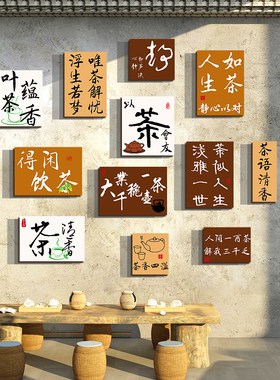 蕴香
叶茶
唯茶解忧
浮生若梦
静
如茶
人生
静心以对
以
茶
會友
得闲
饮茶
茶似人生
淡雅一世
茶语清香
清香
茶
茶香四溢
人间一两茶
解我三千乏